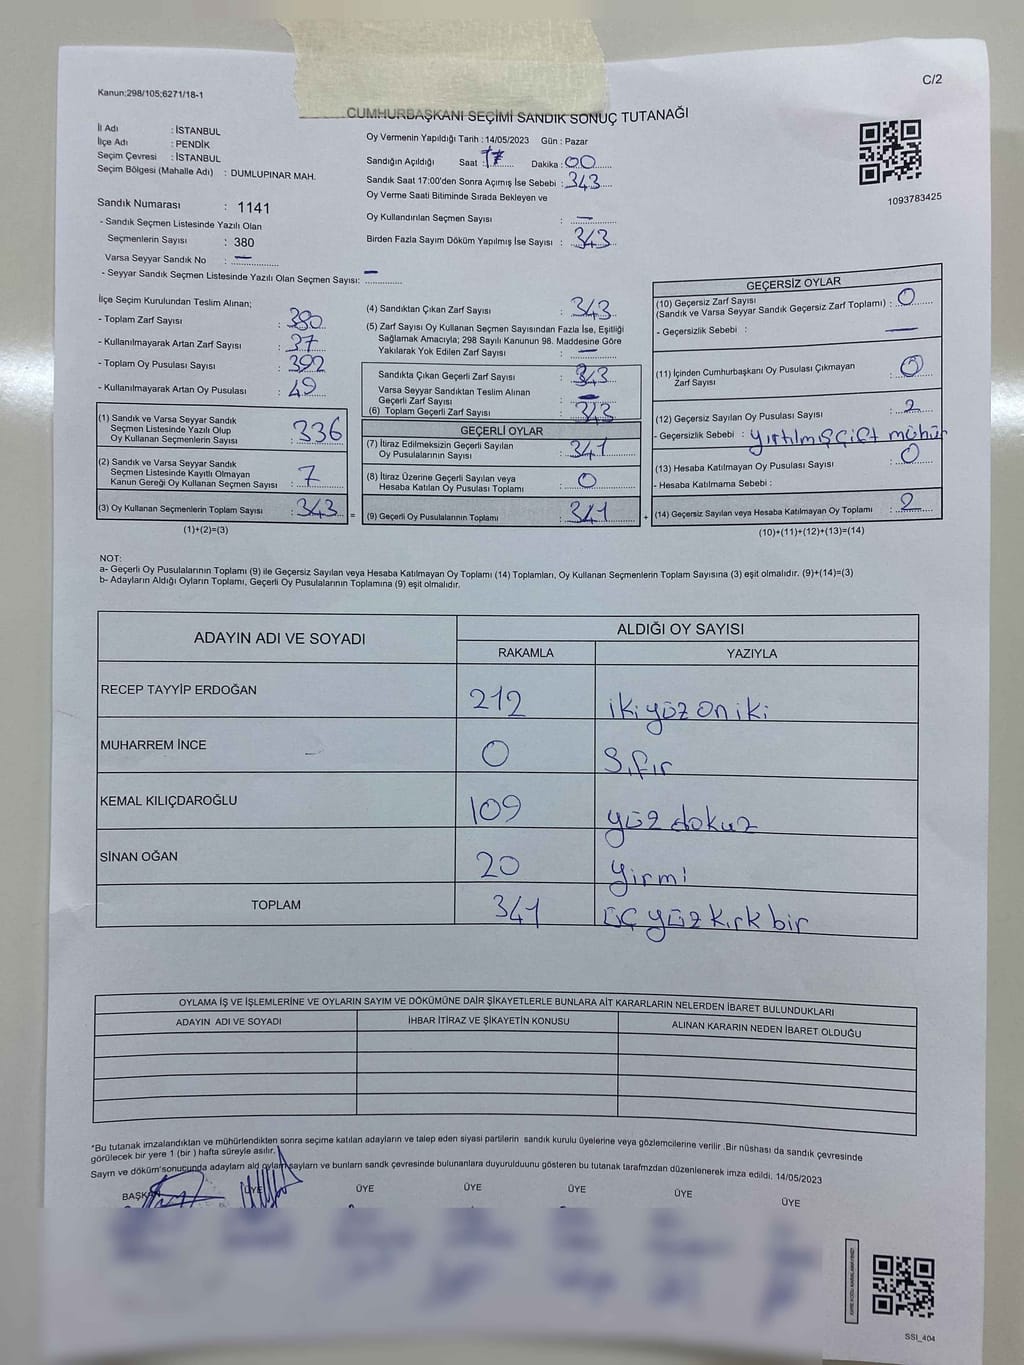 C/2
Kanun;298/105;6271/18-1
CUMHURBAŞKANI SEÇİMİ SANDIK SONUÇ TUTANAĞI
İl Adı : İSTANBUL
İlçe Adı : PENDİK
Seçim Çevresi : İSTANBUL
Seçim Bölgesi (Mahalle Adı) : DUMLUPINAR MAH.
Oy Vermenin Yapıldığı Tarih : 14/05/2023 Gün : Pazar
Sandığın Açıldığı Saat : 17 Dakika : 00
Sandık Saat 17:00'den Sonra Açımış İse Sebebi : 343
Oy Verme Saati Bitiminde Sırada Bekleyen ve
Oy Kullandırılan Seçmen Sayısı : —
Birden Fazla Sayım Döküm Yapılmış İse Sayısı : 343
1093783425
Sandık Numarası : 1141
- Sandık Seçmen Listesinde Yazılı Olan
Seçmenlerin Sayısı : 380
Varsa Seyyar Sandık No : —
- Seyyar Sandık Seçmen Listesinde Yazılı Olan Seçmen Sayısı: —
İlçe Seçim Kurulundan Teslim Alınan;
- Toplam Zarf Sayısı : 380
- Kullanılmayarak Artan Zarf Sayısı : 37
- Toplam Oy Pusulası Sayısı : 392
- Kullanılmayarak Artan Oy Pusulası : 49
(1) Sandık ve Varsa Seyyar Sandık
Seçmen Listesinde Yazılı Olup
Oy Kullanan Seçmenlerin Sayısı : 336
(2) Sandık ve Varsa Seyyar Sandık
Seçmen Listesinde Kayıtlı Olmayan
Kanun Gereği Oy Kullanan Seçmen Sayısı : 7
(3) Oy Kullanan Seçmenlerin Toplam Sayısı : 343 =
(1)+(2)=(3)
(4) Sandıktan Çıkan Zarf Sayısı : 343
(5) Zarf Sayısı Oy Kullanan Seçmen Sayısından Fazla İse, Eşitliği
Sağlamak Amacıyla; 298 Sayılı Kanunun 98. Maddesine Göre
Yakılarak Yok Edilen Zarf Sayısı : —
Sandıkta Çıkan Geçerli Zarf Sayısı : 343
Varsa Seyyar Sandıktan Teslim Alınan
Geçerli Zarf Sayısı : —
(6) Toplam Geçerli Zarf Sayısı : 343
GEÇERLİ OYLAR
(7) İtiraz Edilmeksizin Geçerli Sayılan
Oy Pusulalarının Sayısı : 341
(8) İtiraz Üzerine Geçerli Sayılan veya
Hesaba Katılan Oy Pusulası Toplamı : 0
(9) Geçerli Oy Pusulalarının Toplamı : 341 +
GEÇERSİZ OYLAR
(10) Geçersiz Zarf Sayısı
(Sandık ve Varsa Seyyar Sandık Geçersiz Zarf Toplamı) : 0
- Geçersizlik Sebebi : —
(11) İçinden Cumhurbaşkanı Oy Pusulası Çıkmayan
Zarf Sayısı : 0
(12) Geçersiz Sayılan Oy Pusulası Sayısı : 2
- Geçersizlik Sebebi : yırtılmış çift mühür
(13) Hesaba Katılmayan Oy Pusulası Sayısı : 0
- Hesaba Katılmama Sebebi :
(14) Geçersiz Sayılan veya Hesaba Katılmayan Oy Toplamı : 2
(10)+(11)+(12)+(13)=(14)
NOT:
a- Geçerli Oy Pusulalarının Toplamı (9) ile Geçersiz Sayılan veya Hesaba Katılmayan Oy Toplamı (14) Toplamları, Oy Kullanan Seçmenlerin Toplam Sayısına (3) eşit olmalıdır. (9)+(14)=(3)
b- Adayların Aldığı Oyların Toplamı, Geçerli Oy Pusulalarının Toplamına (9) eşit olmalıdır.
ADAYIN ADI VE SOYADI ALDIĞI OY SAYISI
RAKAMLA YAZIYLA
RECEP TAYYİP ERDOĞAN 212 iki yüz on iki
MUHARREM İNCE 0 Sıfır
KEMAL KILIÇDAROĞLU 109 yüz dokuz
SİNAN OĞAN 20 Yirmi
TOPLAM 341 üç yüz kırk bir
OYLAMA İŞ VE İŞLEMLERİNE VE OYLARIN SAYIM VE DÖKÜMÜNE DAİR ŞİKAYETLERLE BUNLARA AİT KARARLARIN NELERDEN İBARET BULUNDUKLARI
ADAYIN ADI VE SOYADI İHBAR İTİRAZ VE ŞİKAYETİN KONUSU ALINAN KARARIN NEDEN İBARET OLDUĞU
*Bu tutanak imzalandıktan ve mühürlendikten sonra seçime katılan adayların ve talep eden siyasi partilerin sandık kurulu üyelerine veya gözlemcilerine verilir .Bir nüshası da sandık çevresinde
görülecek bir yere 1 (bir ) hafta süreyle asılır.
Sayım ve döküm sonucunda adayların ald oyların sayların ve bunların sandk çevresinde bulunanlara duyurulduunu gösteren bu tutanak tarafmzdan düzenlenerek imza edildi. 14/05/2023
BAŞKAN ÜYE ÜYE ÜYE ÜYE ÜYE ÜYE
SSI_404